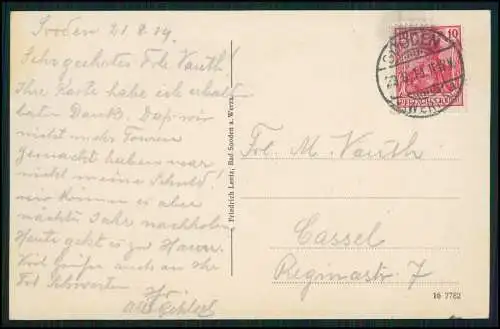 Sooden 21.8.19.
Sehr geehrtes Frl. Vauth!
Ihre Karte habe ich erhalten
besten Dank. Daß wir
nicht mehr Touren
gemacht haben war
nicht meine Schuld!
wir können es aber
nächstes Jahr nachholen
Heute geht es zu Hause.
Viel Grüße auch an Ihr
Frl Schwester
Ihr
Friedrich Lentz, Bad Sooden a. Werra.
10
SOODEN
(WERRA)
Frl. M. Vauth
Cassel
Reginastr. 7
16 7782